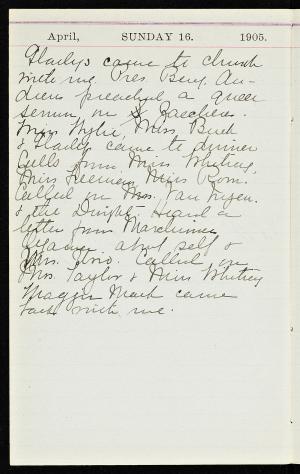 April, SUNDAY 16. 1905.
Gladys came to church
with me. Pres Benj. An-
drews preached a queer
sermon on Zaccheus.
Miss Wylie, Miss Buck
& Gladys came to dinner
Calls from Miss Whitney,
Miss Miss
Called on Mrs. Van
& the Dwights. Heard a
letter from
about self &
Mrs. Called on
Mrs. Taylor & Miss Whitney
Maggie came
back with me.